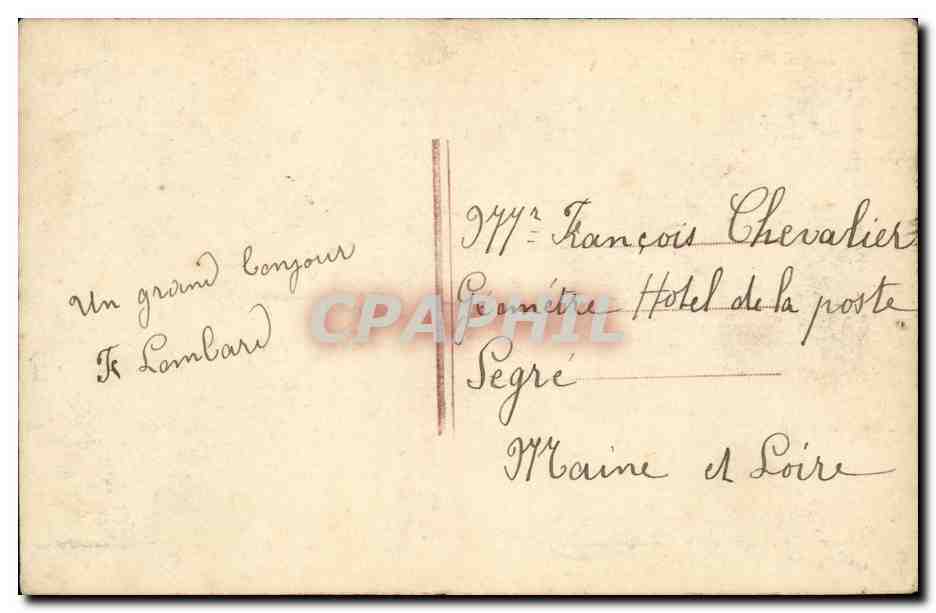 Un grand bonjour
F Lombard
Mr François Chevalier
Géométre Hotel de la poste
Segré
Maine et Loire
CPAPHIL